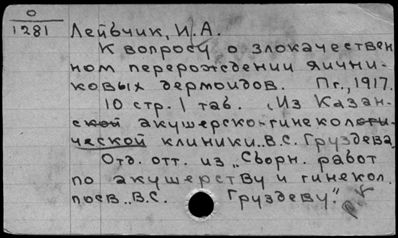 О
1281 Лейвчик, И.А.
К вопросу о злокачествен
ном перерождении яични-
ковых дермоидов. Пг., 1917.
10 стр. 1 таб. (Из Казан-
ской акушерско-гинекологи-
ческой клиники.. В.С. Груздева
Отд. отт. из „Сборн. работ
по акушерству и гинекол.
посв.. В.С. Груздеву."